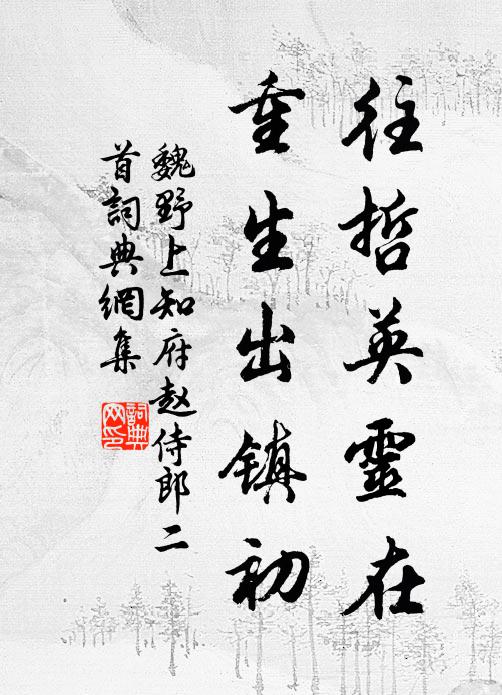 往哲英靈在
重生出鎮初
魏野上知府赵侍郎二
首詞典網集
詞典网印